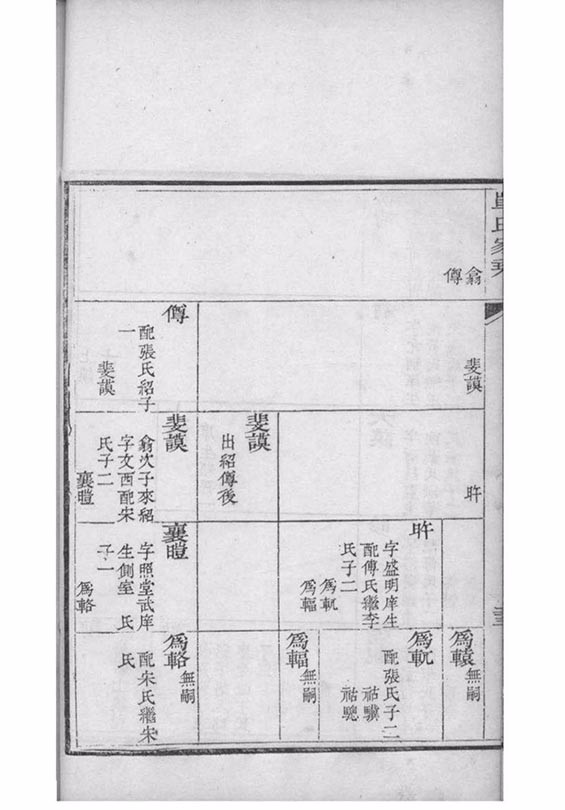 氏家乘
翕
傅
斐謨
傅
配張氏紹子
一
斐謨
旿
斐謨
出紹傅後
斐謨
翕次子來紹
字文西配宋
氏子二
襄暟
旿
字盛明庠生
配傅氏繼李
氏子二
爲軏
爲輻
襄暟
字照堂武庠
生側室 氏
子一
爲輅
爲轅
無嗣
爲軏
配張氏子二
祜驥
祜驄
爲輻
無嗣
爲輅
無嗣
配朱氏繼朱
氏